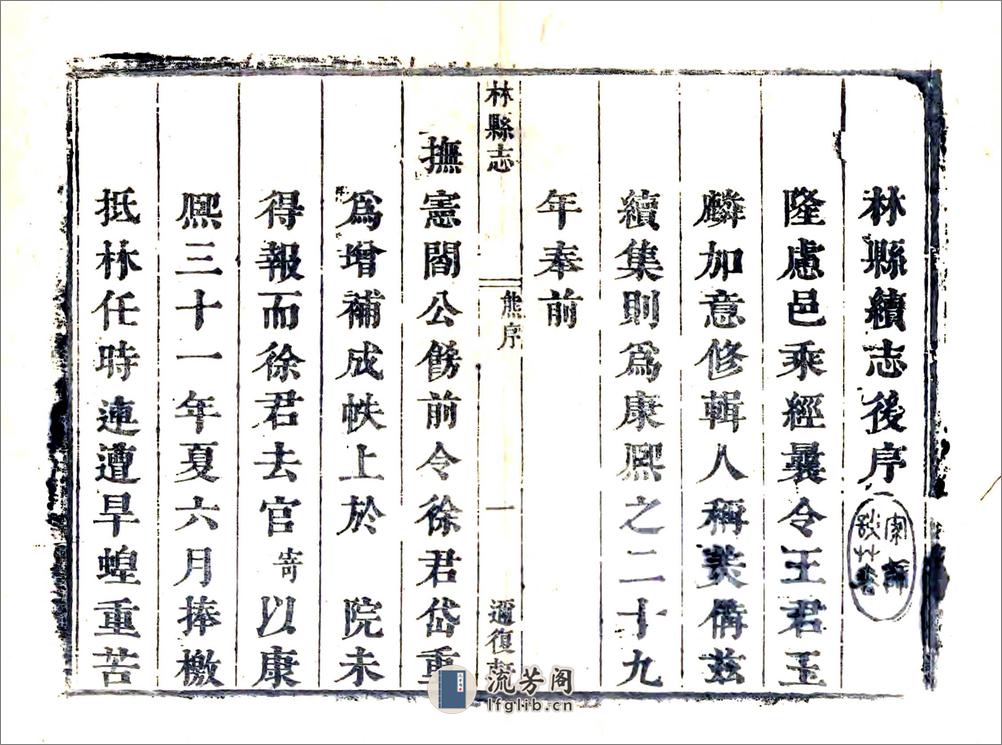 林縣續志後序
隆慮邑乘經曩令王君玉
麟加意修輯人稱裘備茲
續集則爲康熙之二十九
年奉前
林縣志
熊序
一
邇復齋
撫憲閻公餝前令徐君岱重
爲增補成帙上於 院未
得報而徐君去官嵜以康
熙三十一年夏六月捧檄
抵林任時連遭旱蝗重苦
流芳阁
lfglib.cn